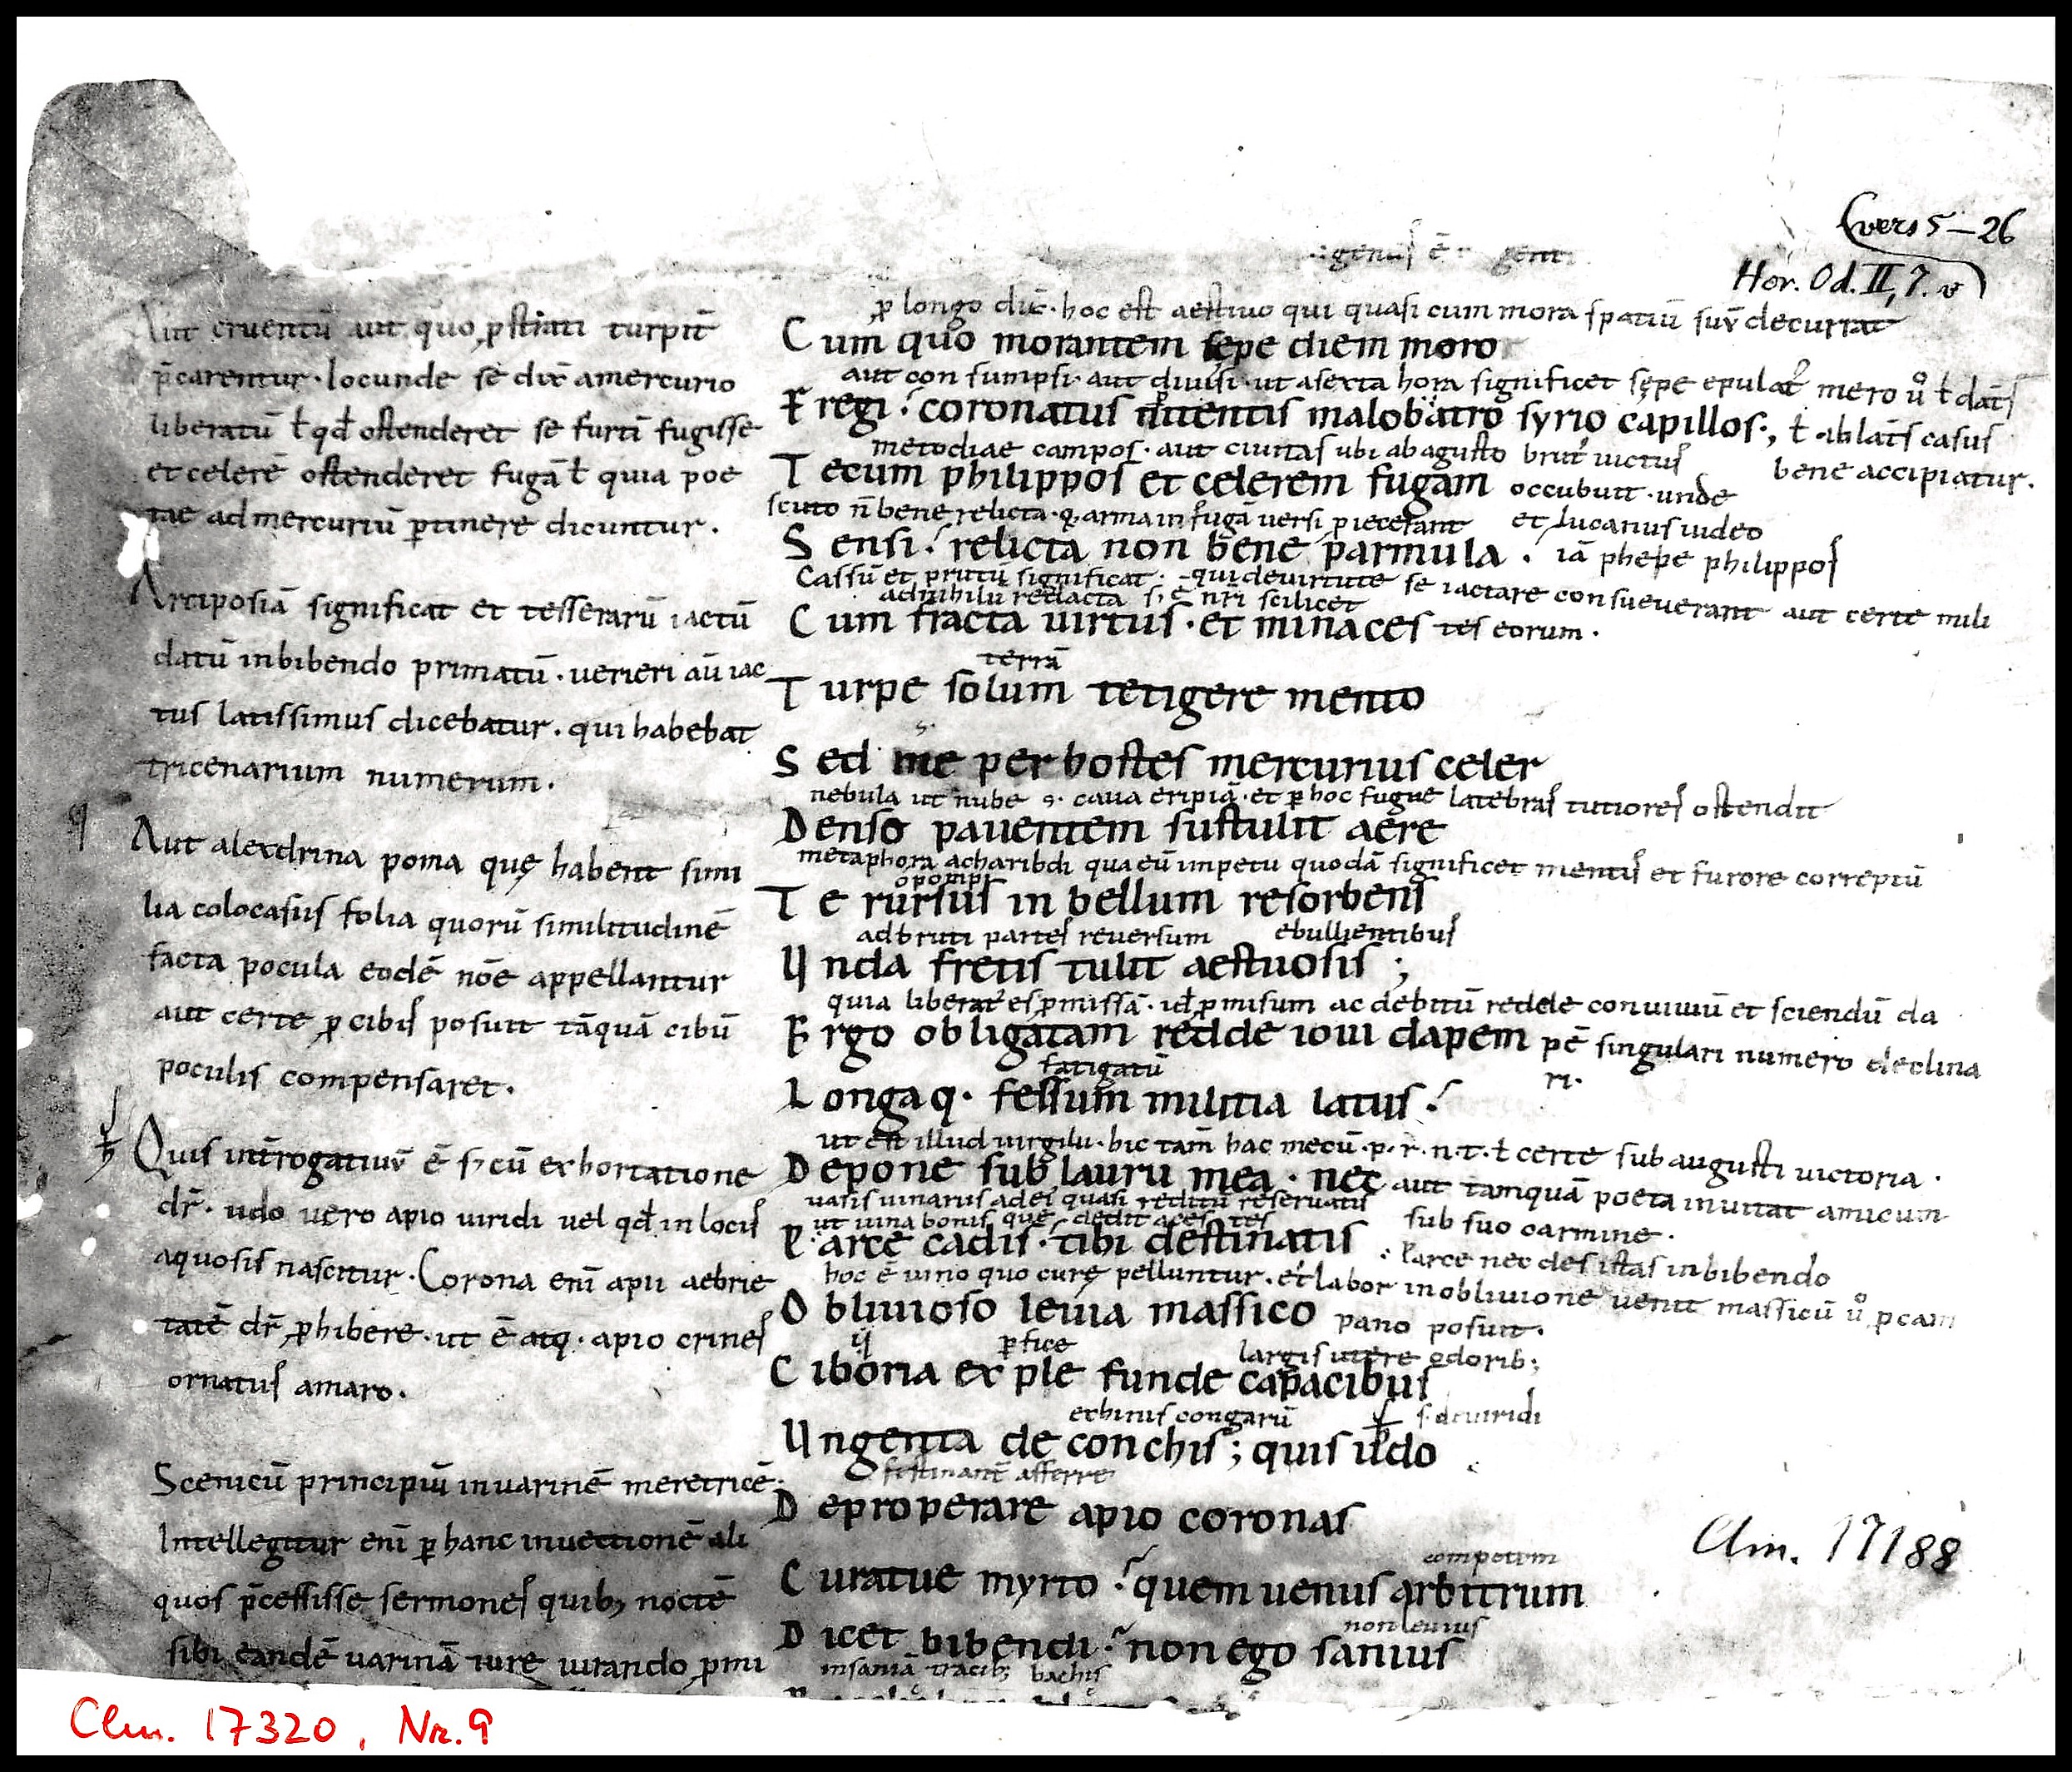 vers 5–26
Hor. Od. II, 7. v
genus ē gent
Aut cruentū aut quo ꝓstrati turpit̄
p̄carentur · Iocunde se dix̄ a mercurio
liberatū ł qđ ostenderet se furtī fugisse
et celerē ostenderet fugā ł quia poe
tae ad mercuriū ꝑtinere dicuntur .
Arciposiā significat et tesserarū iactū
datū in bibendo primatū · uerieri aū iac
tus latissimus dicebatur . qui habebat
tricenarium numerum .
Aut alexdrina poma quę habent simi
lia colocasiis folia quorū similitudinē
facta pocula eodē nōe appellantur
aut certe ꝓ cibis posuit tāquā cibū
poculis compensaret .
Quis int̄rogatiuū ē s; cū exhortatione
dr̄ · udo uero apio uiridi uel qđ in locis
aquosis nascitur · Corona enī apii aebrie
tatē dr̄ ꝓhibere · ut ē atq · apio crines
ornatus amaro .
Scenicū principiū in uarinē meretricē ·
Intellegitur enī ꝑ hanc inuectionē ali
quos p̄cessisse sermones quib; noctē
sibi eandē uarinā iure iurando ꝓmi
ꝓ longo dic̄ · hoc est aestiuo qui quasi cum mora spatiū suū decurrat
Cum quo morantem sępe diem mero
aut consumpsi · aut diuisi · ut a sexta hora significet sępe epulat̄ mero ů ł dat̄s
Fregi · coronatus nitentis malobatro syrio capillos ·, ł ablat̄s casus
bene accipiatur .
metodiae campos · aut ciuitas ubi ab agusto brut' uictus
Tecum philippos et celerem fugam occubuit · unde
scuto n̄ bene relicta · q, arma in fugā uersi ꝓiecerant et lucanus uideo
Sensi · relicta non bene parmula · iā phępe philippos
Cassū et prutū significat · qui de uirtute se iactare consueuerant aut certe mili
ad nihilū redacta s; ē nr̄i scilicet
Cum fracta uirtus · et minaces tes eorum ·
terrā
Turpe solum tetigere mento
s ·
Sed me per hostes mercurius celer
nebula ut nube s · caua eripiā · et ꝑ hoc fugae latebras tutiores ostendit
Denso pauentem sustulit aere
metaphora a charibdi qua eū impetu quodā significet mentis et furore correptū
o pompi
Te rursus in bellum resorbens
ad bruti partes reuersum ebullientibus
Unda fretis tulit aestuosis ;
quia liberat' es ꝓmissā · id ꝓmisum ac debitū redde conuiuiū et sciendū da
Ergo obligatam redde ioui dapem pē singulari numero declina
ri ·
fatigatū
Longaq · fessum militia latus ·
ut est illud uirgilii · hic tam̄ hac mecū · p · r · n · t · ł certe sub augusti uictoria ·
Depone sub lauru mea · nec aut tamquā poeta inuitat amicum
uasis uinariis ades quasi reditū reseruatis sub suo carmine ·
ut uina bonis que dedit acestes
Parce cadis · tibi destinatis · Parce nec des istas in bibendo
hoc ē uino quo curę pelluntur · et labor in obliuione uenit massicū ů ꝓ cam
Obliuioso leuia massico pano posuit ·
ꝑfice largis utere odorib;
Ciboria exple funde capacibus
echinis congarū s · de uiridi
Ungenta de conchis ; quis udo
festinant̄ afferre
Deproperare apio coronas
competem
Curatue myrto · quem uenus arbitrum
non leuius
Dicet bibendi · non ego sanius
insaniā tracib; bachis
Clm. 17188
Clm. 17320, Nr. 9